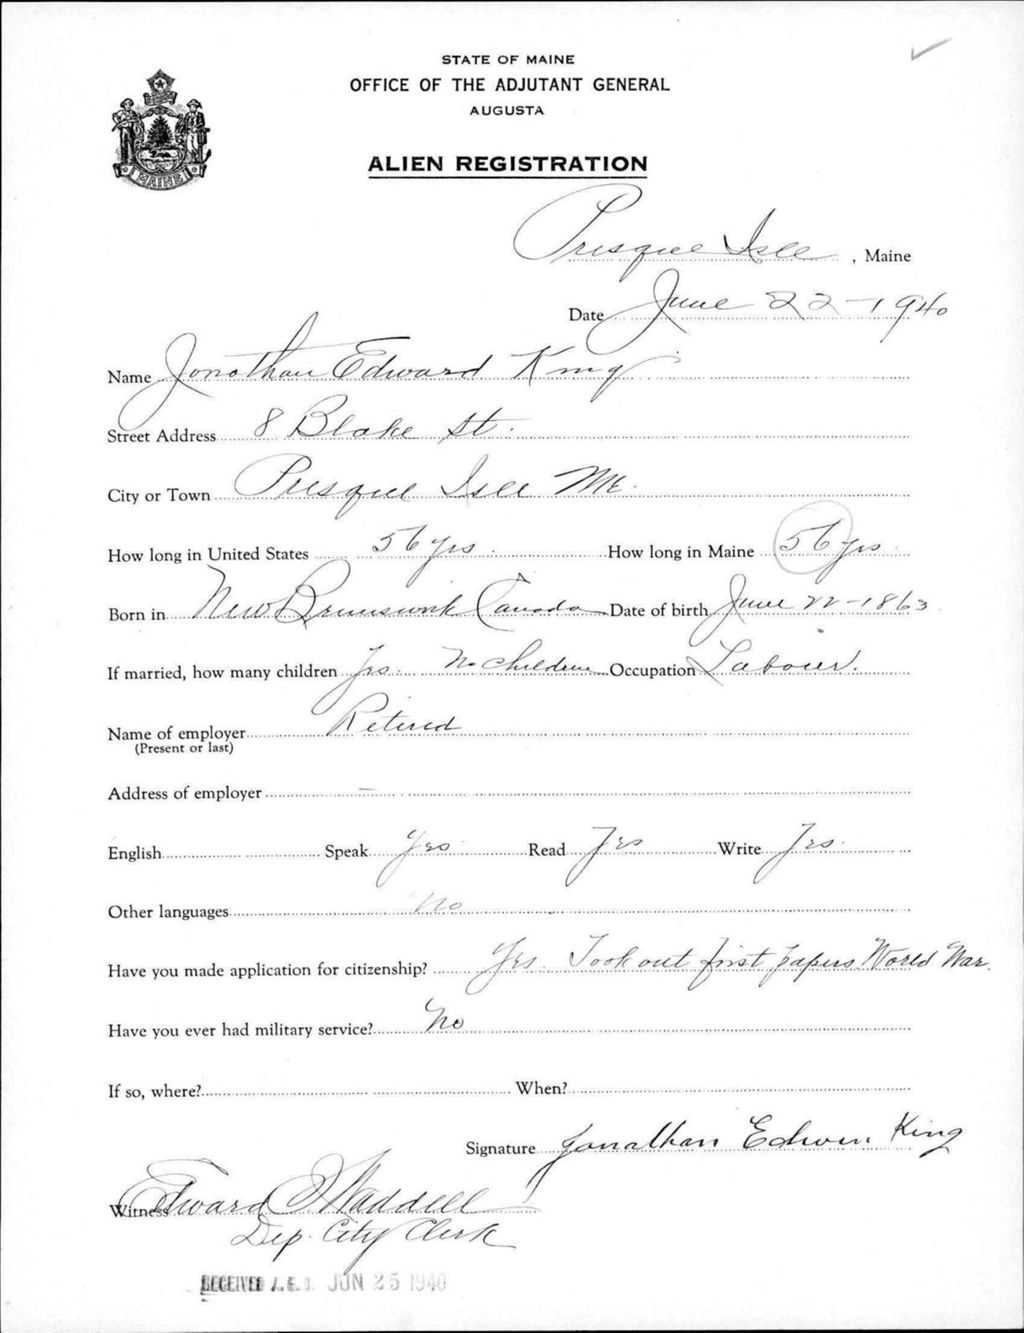 STATE OF MAINE
OFFICE OF THE ADJUTANT GENERAL
AUGUSTA
MAINE
ALIEN REGISTRATION
Presque Isle, Maine
Date June 22-1940
Name Jonathan Edward King
Street Address 8 Blake St.
City or Town Presque Isle Me.
How long in United States 56 yrs. How long in Maine 56 yrs
Born in New Brunswick Canada Date of birth June 22-1863
If married, how many children Yes. No Children Occupation Labourer.
Name of employer Retired
(Present or last)
Address of employer —
English Speak Yes Read Yes Write Yes.
Other languages No
Have you made application for citizenship? Yes. Took out first papers World War.
Have you ever had military service? No
If so, where? When?
Signature Jonathan Edwin King
Witness Edward Waddell
Dep. City Clerk
RECEIVED JUN 25 1940